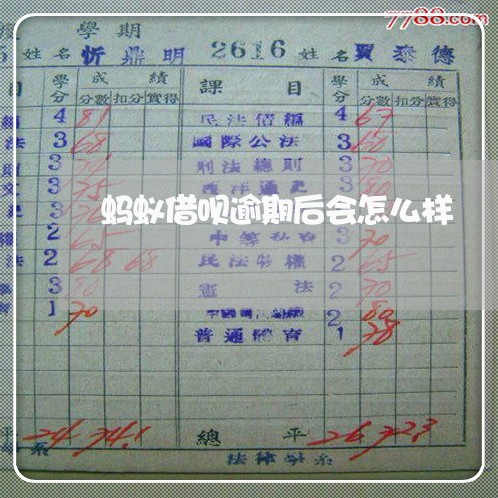 7788.com
學期
姓名 忻鼎明 2616 姓名 賈泰德
目 學分 成績 課目 學分 成績
分數 扣分 實得 分數 扣分 實得
4 81 民法債編 4 67
法 3 68 國際公法 3 60
3 刑法總則 3 70
3 75 西洋通史 3 80
蚂蚁借呗逾期后会怎么样
2 65 3 70
法 2 68 68 民法物權 2 65
3 80 憲法 2 70
1 70 2 80
普通體育 1 78
24 74.1 總平 26 72.3
系 法律學系